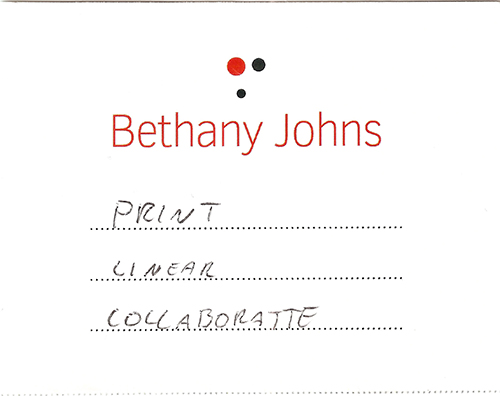 Bethany Johns
PRINT
LINEAR
COLLABORATTE